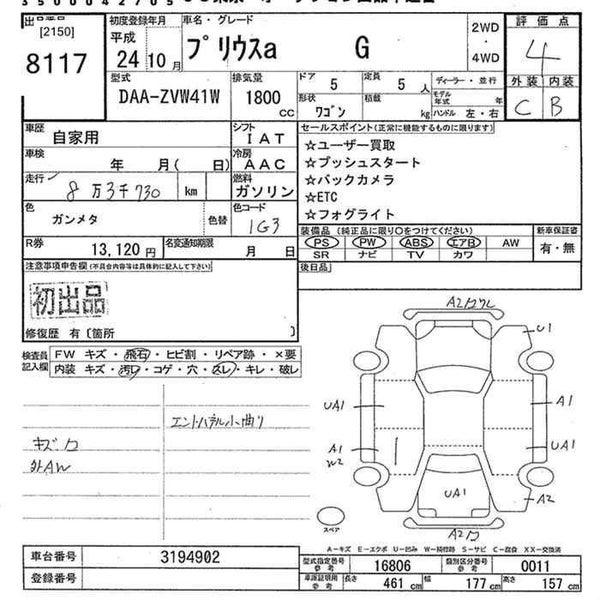 3500042705
出品番号
[2150]
8117
初度登録年月
平成
24年10月
車名・グレード
プリウスa G
2WD
・
4WD
評価点
4
外装 内装
C B
型式
DAA-ZVW41W
排気量
1800
CC
ドア 5
形状 ワゴン
定員 5 人
積載 kg
ディーラー・並行
モデル年式 年
ハンドル 左・右
車歴
自家用
シフト
IAT
車検
年 月( 日)
冷房
AAC
走行
8万3千730 km
燃料
ガソリン
色
ガンメタ
色替
色コード
1G3
R券
13,120円
名変通知期限
月 日
セールスポイント(正常に機能するものに限ります)
☆ユーザー買取
☆プッシュスタート
☆バックカメラ
☆ETC
☆フォグライト
装備品(純正品に限り○をつけてください)
PS PW ABS エアB AW
SR ナビ TV カワ
新車保証書
有・無
後日品
注意事項申告欄(不具合内容等は具体的に記入して下さい)
初出品
修復歴 有〔箇所 〕
検査員記入欄
FW キズ・飛石・ヒビ割・リペア跡・×要
内装 キズ・汚レ・コゲ・穴・スレ・キレ・破レ
キズ
外AW
U1
UA1
A1
A1
W2
UA1
UA1
A2
スペア
A-キズ E-エクボ U-凹み W-補修跡 S-サビ C-腐食 XX-交換済
車台番号
3194902
登録番号
型式指定番号
参考
16806
類別区分番号
参考
0011
車庫証明用
参考
長さ 461 cm
幅 177 cm
高さ 157 cm